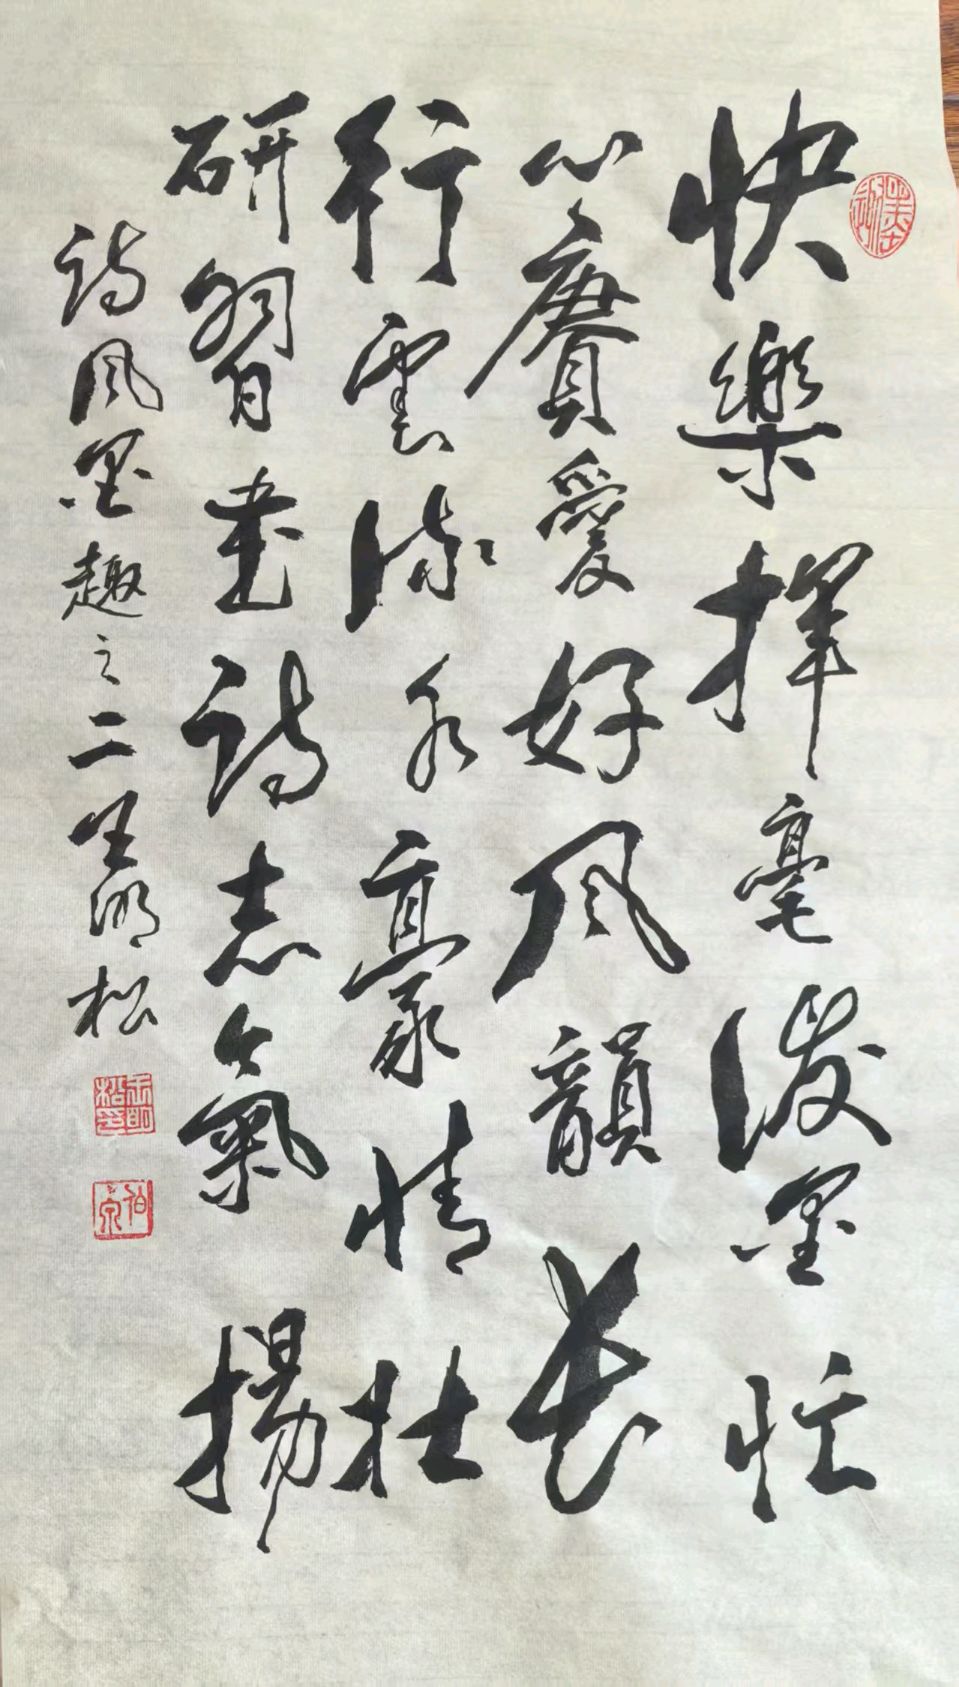 快樂揮毫潑墨忙
心賡愛好風韻長
行雲流水豪情壯
研習書詩志氣揚
詩風墨趣之二 王明松